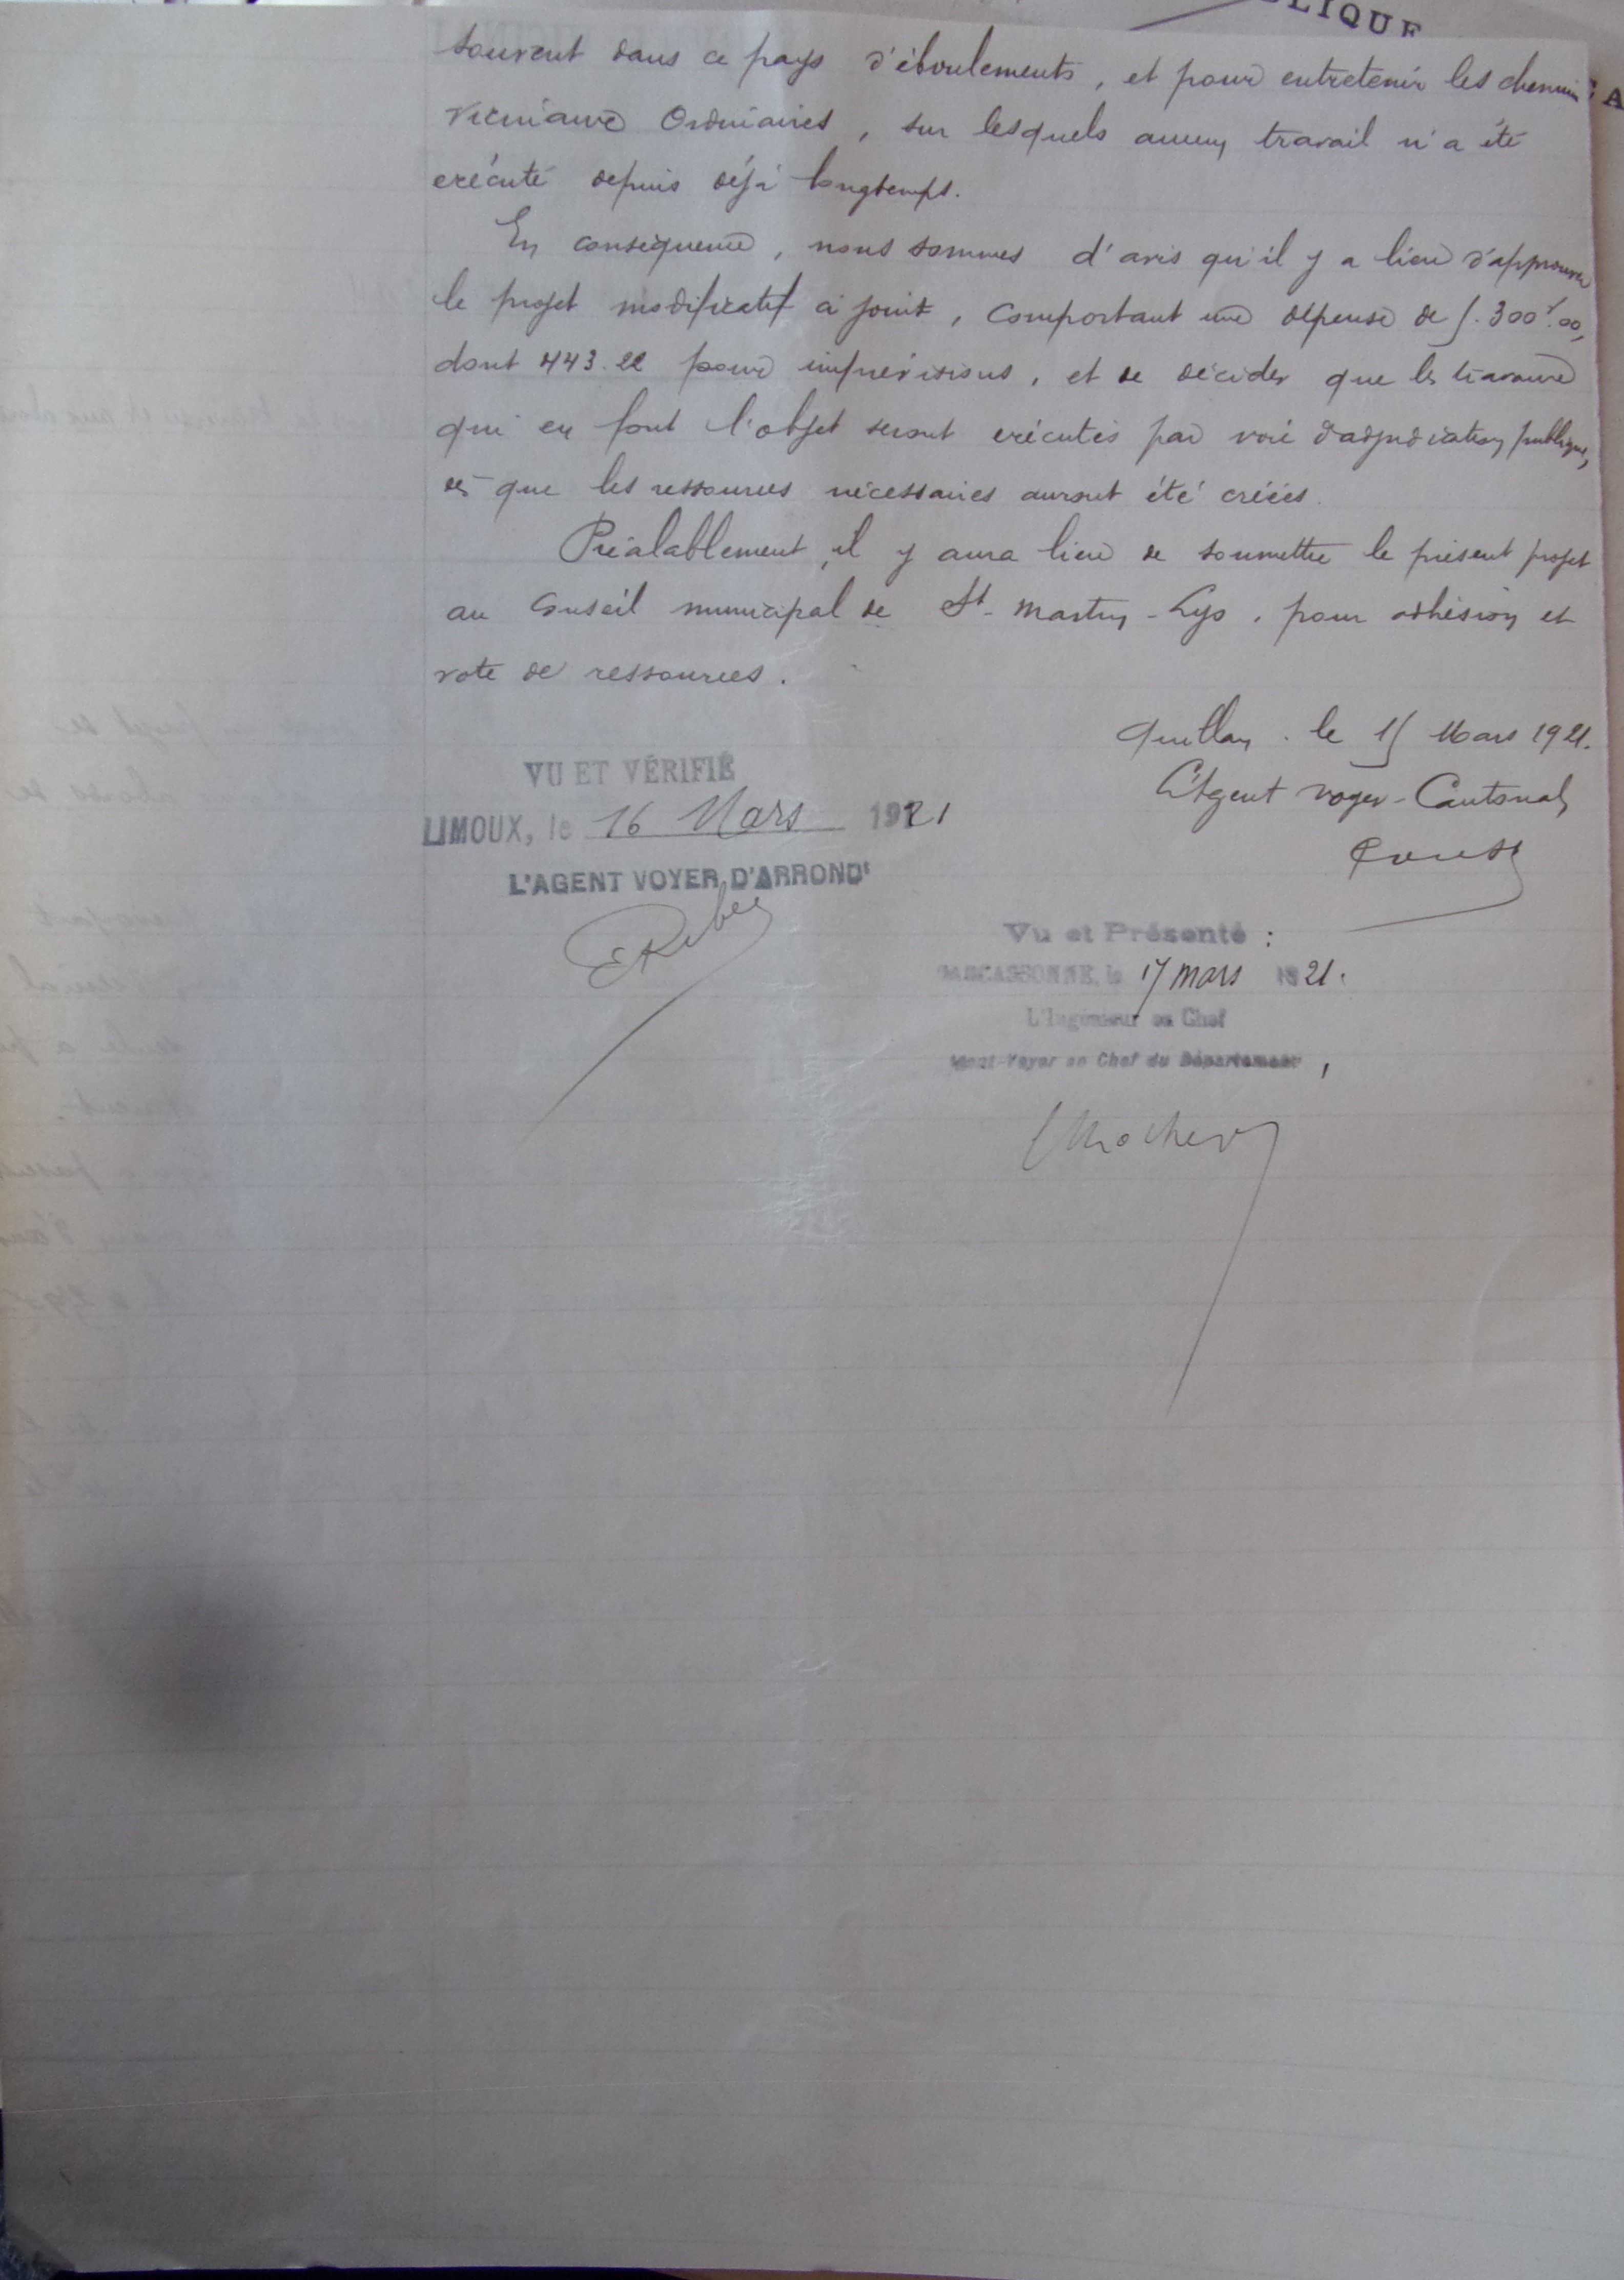 LIQUE
CA
souvent dans ce pays d'éboulements, et pour entretenir les chemins
vicinaux Ordinaires, sur lesquels aucun travail n'a été
exécuté depuis déjà longtemps.
En conséquence, nous sommes d'avis qu'il y a lieu d'approuver
le projet modificatif ci joint, comportant une dépense de 5.300f.00,
dont 443.22 pour imprévisions, et de décider que les travaux
qui en font l'objet seront exécutés par voie d'adjudication publique,
dès que les ressources nécessaires auront été créées.
Préalablement, il y aura lieu de soumettre le présent projet
au Conseil municipal de St-Martin-Lys, pour adhésion et
vote de ressources.
Quillan, le 15 Mars 1921.
L'Agent voyer-Cantonal,
VU ET VÉRIFIÉ
LIMOUX, le 16 Mars 1921
L'AGENT VOYER D'ARRONDt
Vu et Présenté :
CARCASSONNE, le 17 mars 1921.
L'Ingénieur en Chef
Agent-Voyer en Chef du Département,